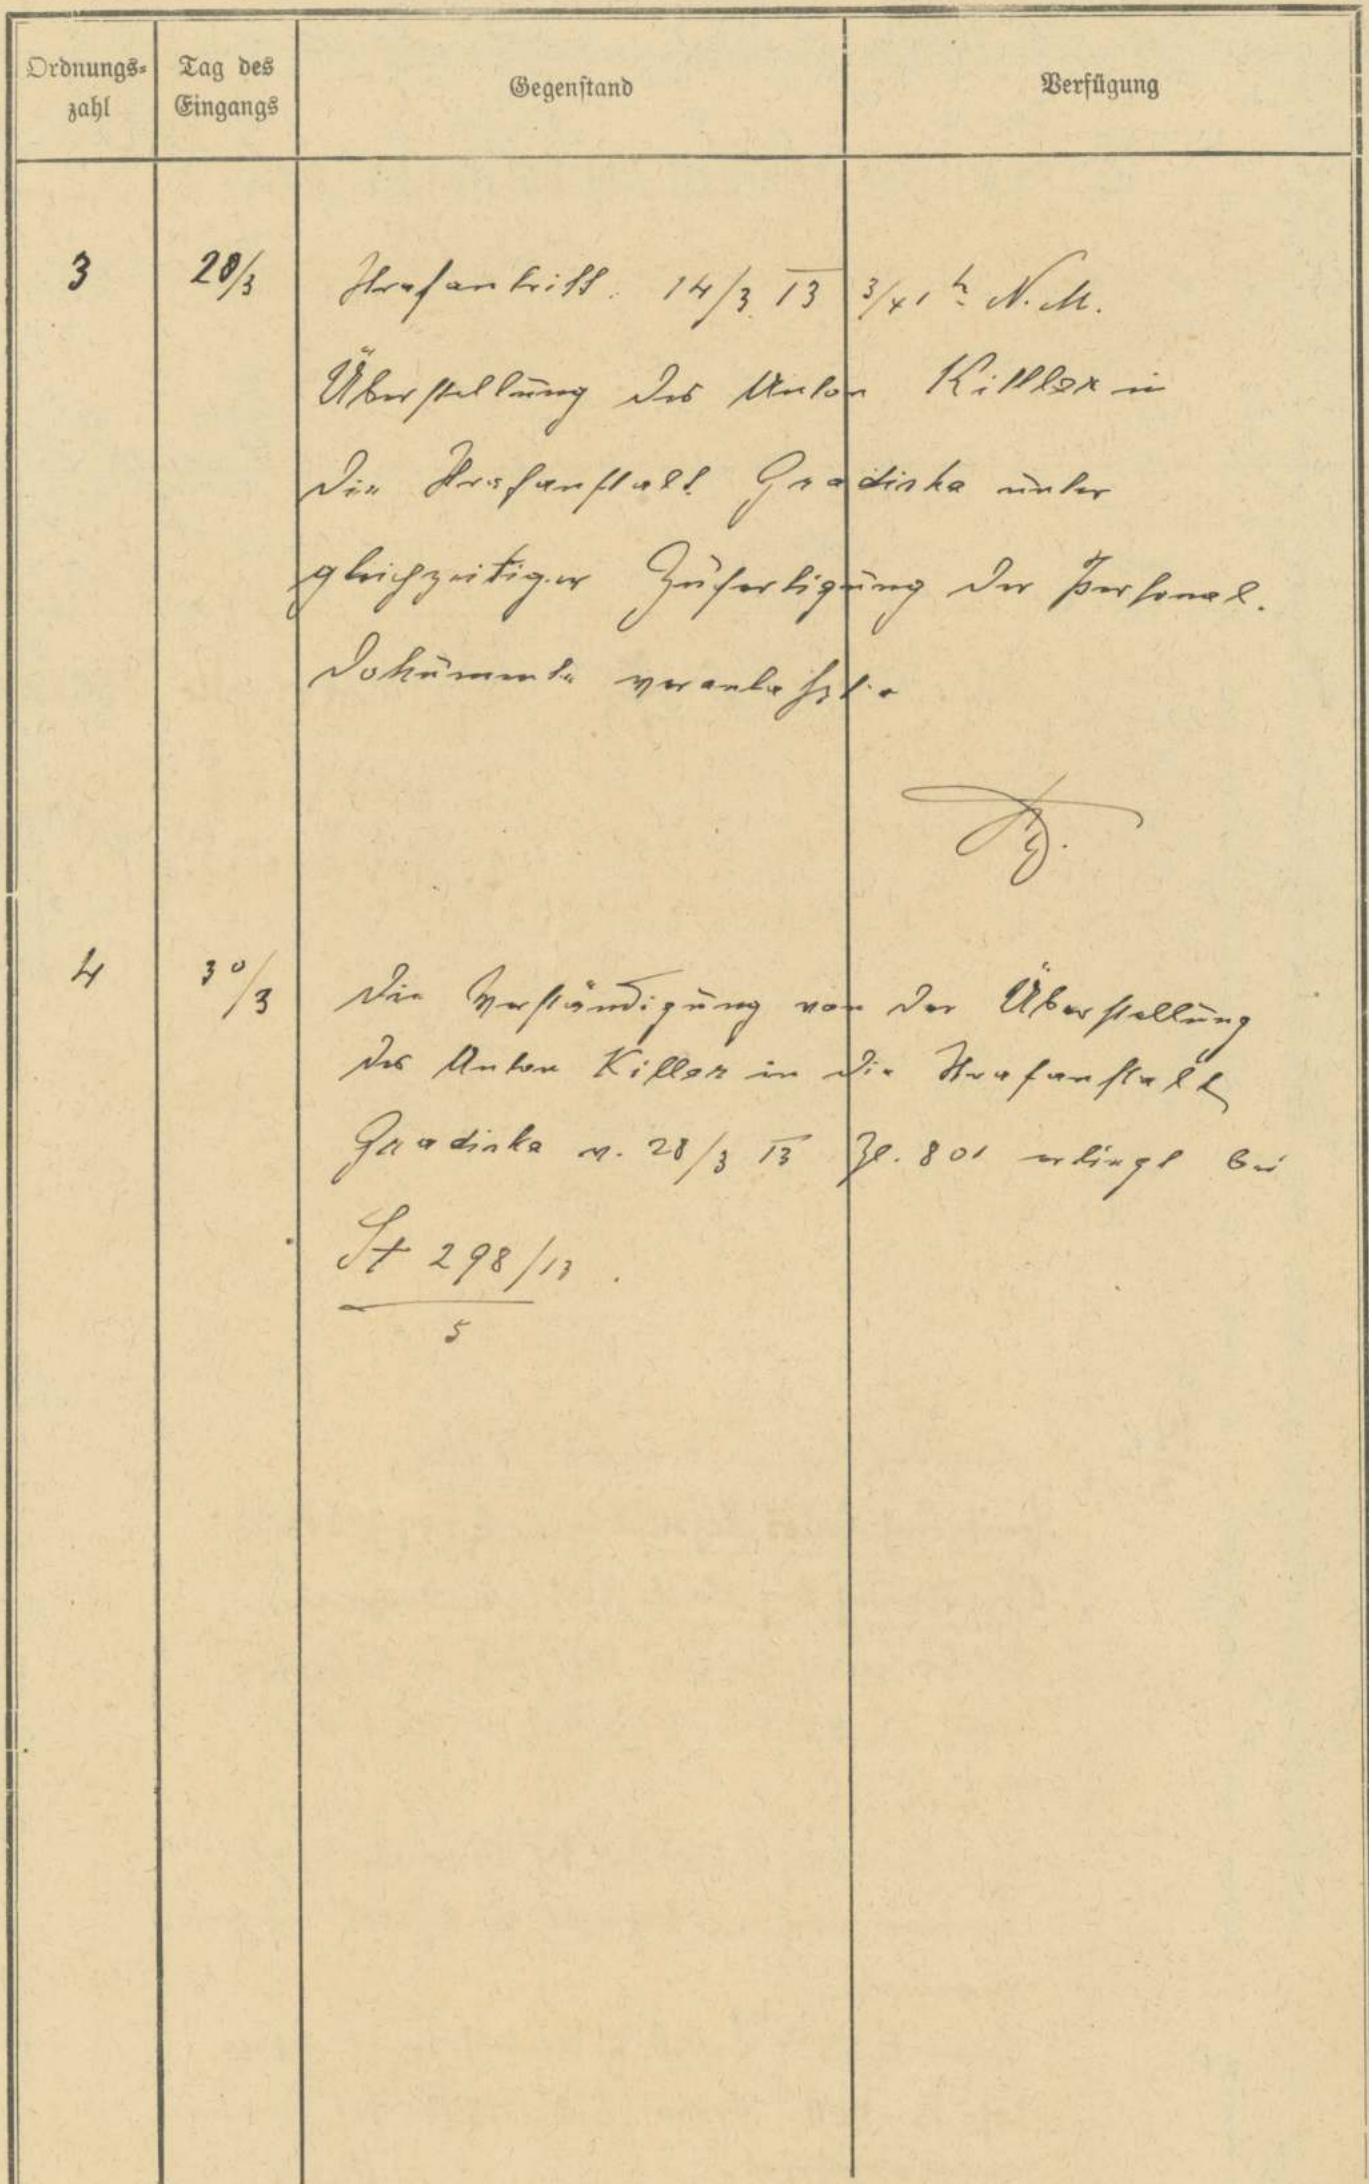 Ordnungs-
zahl
Tag des
Eingangs
Gegenstand
Verfügung
3
28/3
Strafantritt: 14/3 13 3/4 1 h N. M.
Überstellung des Anton Kittler in
die Strafanstalt Gradiska unter
gleichzeitiger Zufertigung der Personal.
dokumente veranlaßt.
4
30/3
Die Verständigung von der Überstellung
des Anton Killer in die Strafanstalt
Gradiska v. 28/3 13 Zl. 801 erliegt bei
St 298/13.
5